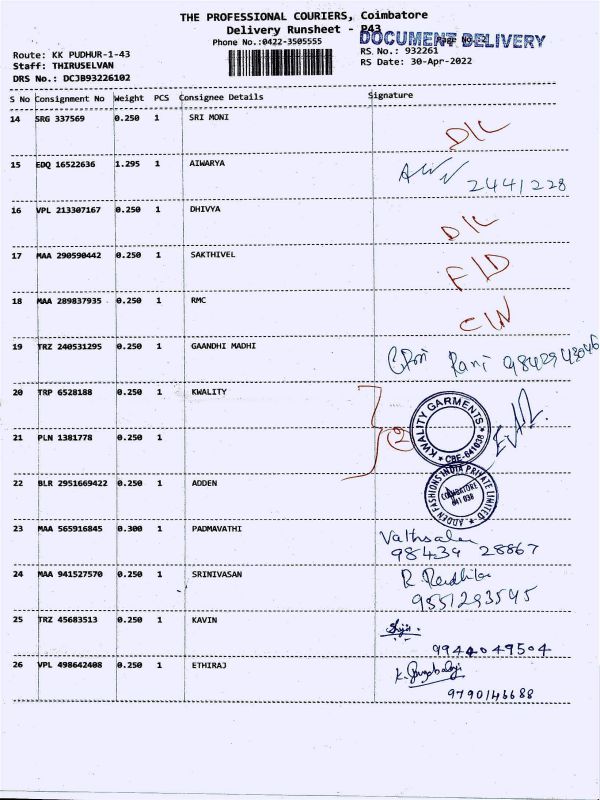 THE PROFESSIONAL COURIERS, Coimbatore
Delivery Runsheet - P43
Phone No.:0422-3505555
DOCUMENT DELIVERY
Route: KK PUDHUR-1-43
RS. No.: 932261
Staff: THIRUSELVAN
RS Date: 30-Apr-2022
DRS No.: DCJB93226102
S No Consignment No Weight PCS Consignee Details Signature
14 SRG 337569 0.250 1 SRI MONI
D/L
15 EDQ 16522636 1.295 1 AIWARYA
2441228
16 VPL 213307167 0.250 1 DHIVYA
D/L
17 MAA 290590442 0.250 1 SAKTHIVEL
F/D
18 MAA 289837935 0.250 1 RMC
19 TRZ 240531295 0.250 1 GAANDHI MADHI
Rani 9842943046
20 TRP 6528188 0.250 1 KWALITY
KWALITY GARMENTS
CBE-641038
2
21 PLN 1381778 0.250 1
22 BLR 2951669422 0.250 1 ADDEN
ADDEN FASHIONS INDIA PRIVATE LIMITED
COIMBATORE
641 038
23 MAA 565916845 0.300 1 PADMAVATHI
Vathsala
98439 28867
24 MAA 941527570 0.250 1 SRINIVASAN
R.
9551293545
25 TRZ 45683513 0.250 1 KAVIN
9944049504
26 VPL 498642408 0.250 1 ETHIRAJ
K.
9790146688